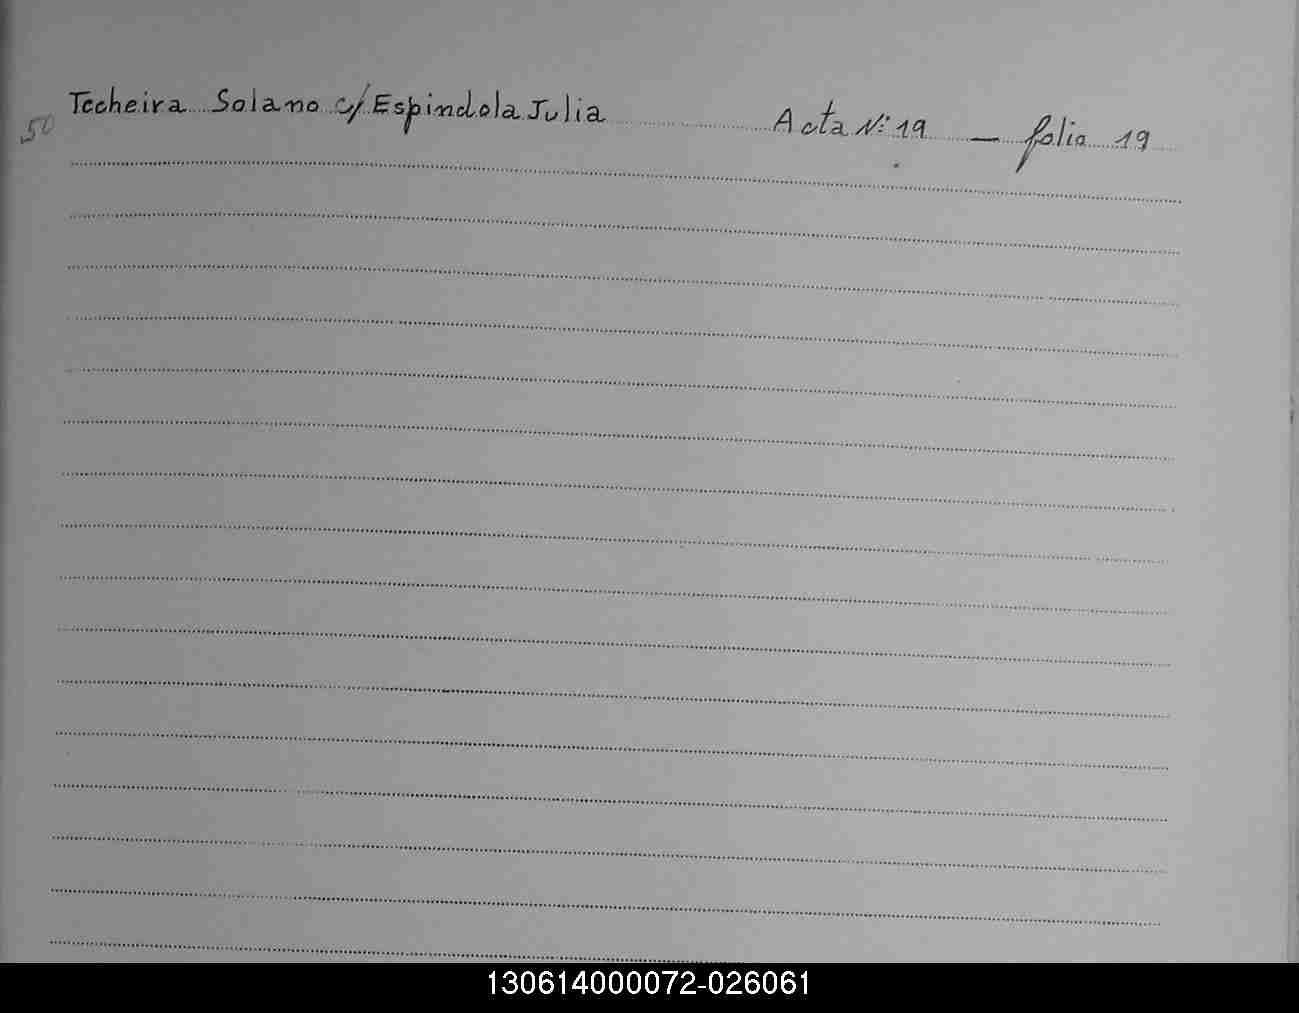 50 Techeira Solano c/ Espindola Julia Acta Nº 19 — folio 19
130614000072-026061